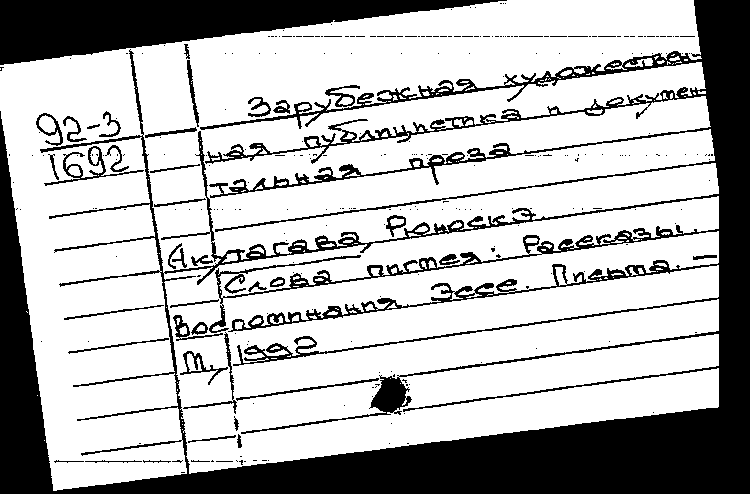 92-3
1692
Зарубежная художествен-
ная публицистика и докумен-
тальная проза.
Акутагава, Рюноскэ
Слова пигмея: Рассказы.
Воспоминания. Эссе. Письма. —
М., 1992